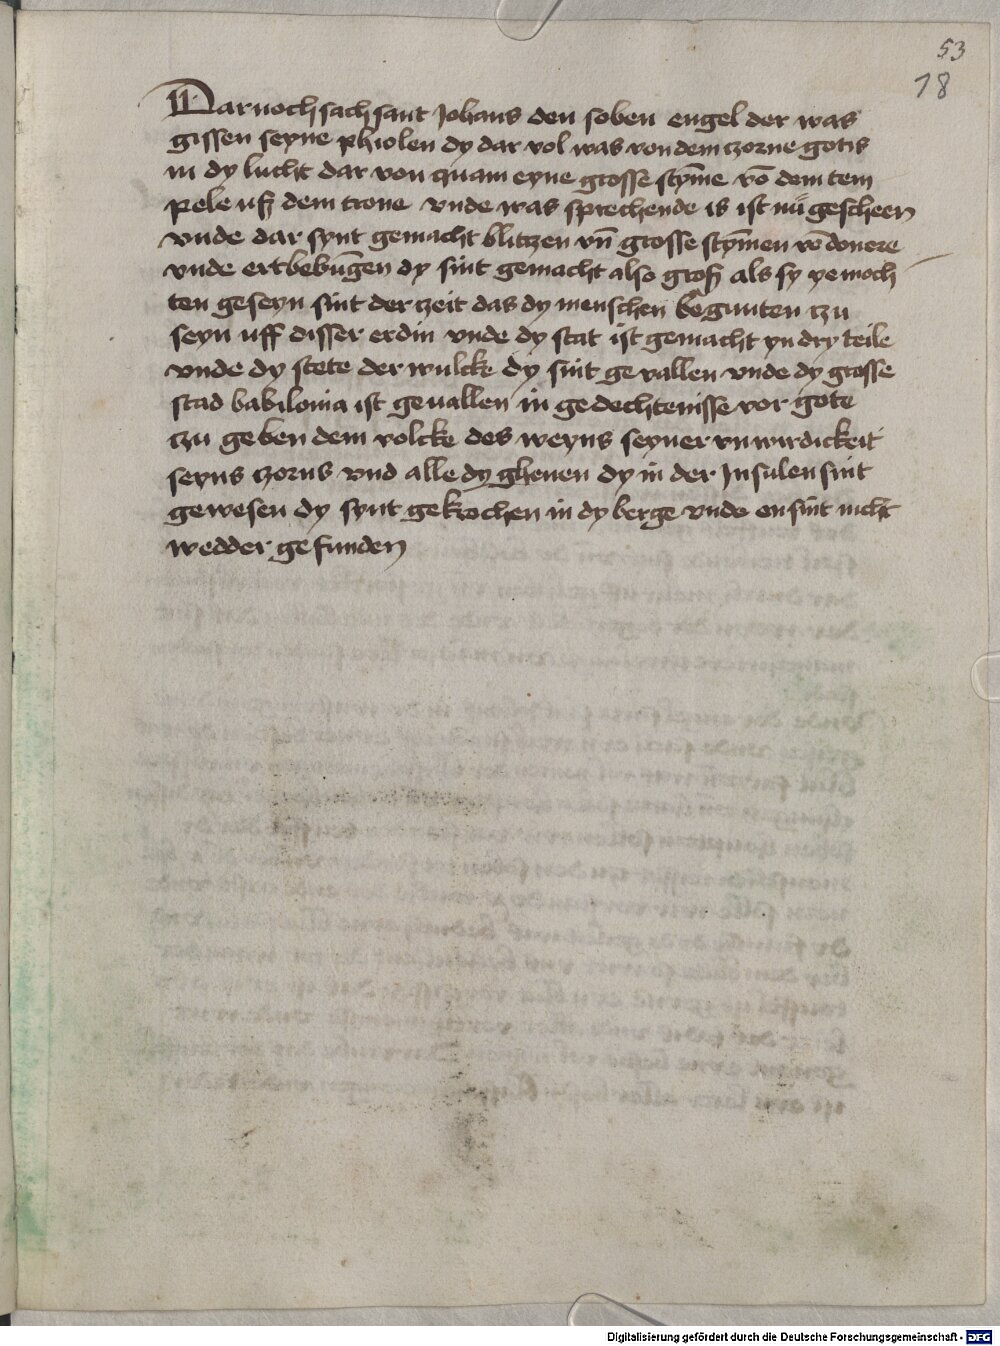 53
18
Darnoch sach sant Johans den soben engel der was
gissen seyne phiolen dy dar vol was von dem czorne gotis
in dy lucht dar von quam eyne grosse stym̄e vō dem tem
pele uß dem trone vnde was sprechende is ist nů gescheen
vnde dar synt gemacht blitzen vn̄ grosse stym̄en vō donere
vnde ertbebūgen dy sint gemacht also groß als sy ye moch
ten geseyn sint der zeit das dy menschen begunten czu
seyn uff disser erdin vnde dy stat ist gemacht yn dry teile
vnde dy stete der wulcke dy sint ge vallen vnde dy grosse
stad babilonia ist geuallen in gedechtenisse vor gote
czu geben dem volcke des weyns seyner vnwirdickeit
seyns czorns vnd alle dy ghenen dy in der Insulen sint
gewesen dy synt gekrochen in dy berge vnde en sint nicht
wedder gefunden
Digitalisierung gefördert durch die Deutsche Forschungsgemeinschaft - DFG